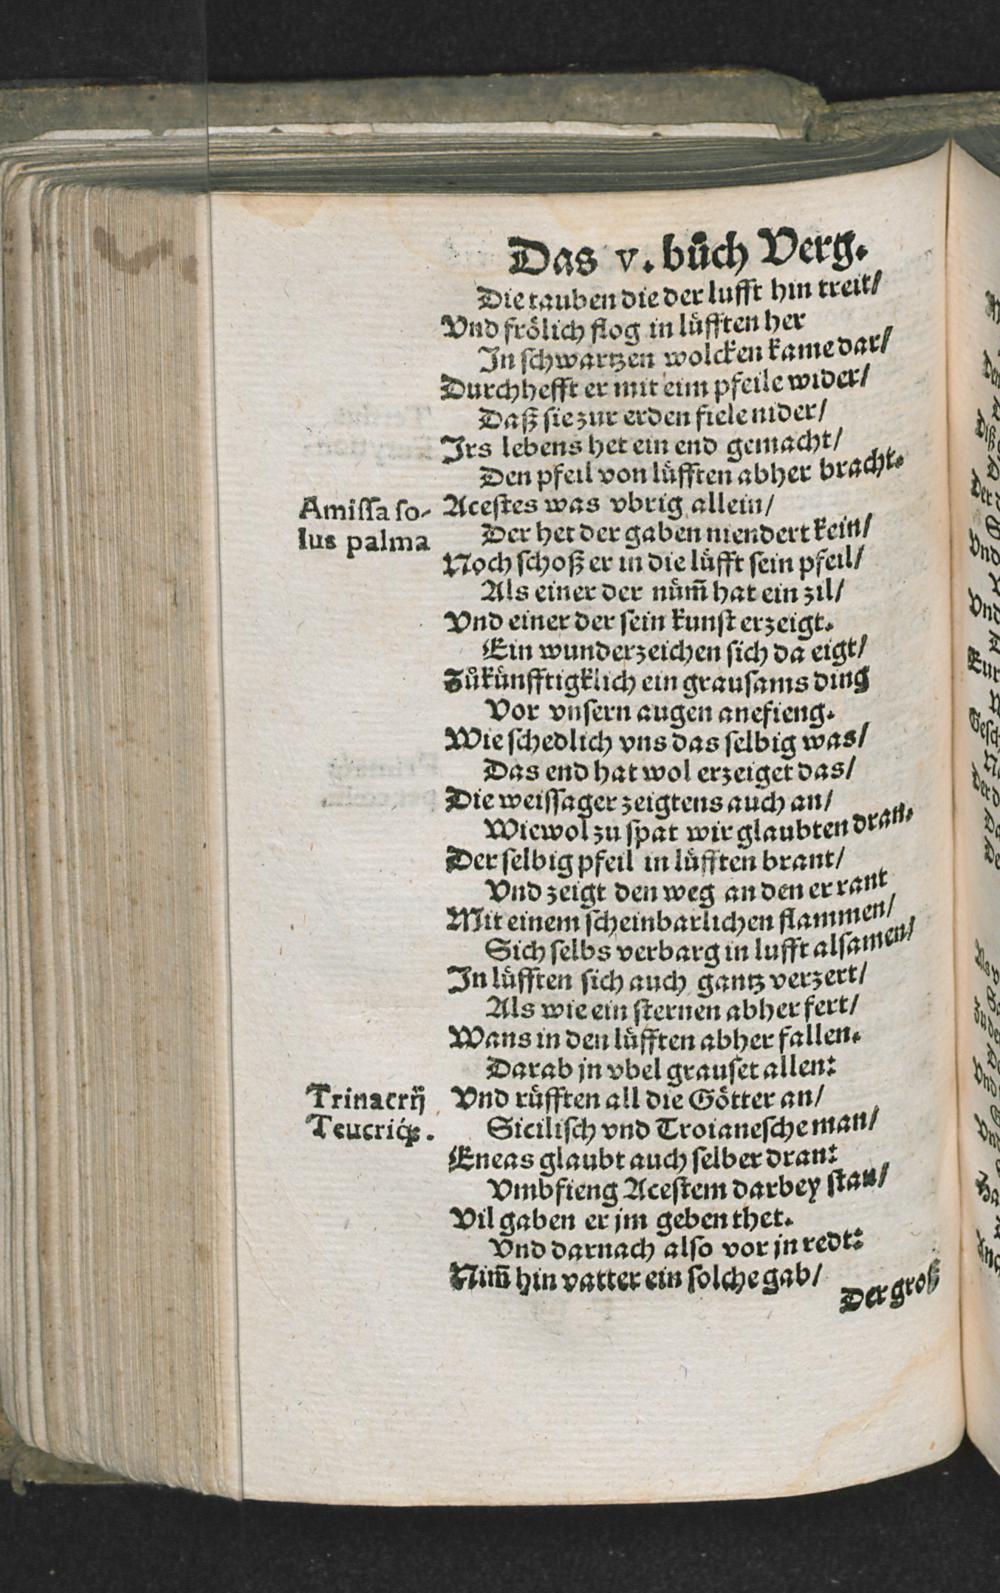 Das v. bůch Verg.
Die tauben die der lufft hin treit/
Vnd frölich flog in lüfften her
In schwartzen wolcken kame dar/
Durchhefft er mit eim pfeile wider/
Daß sie zur erden fiele nider/
Irs lebens het ein end gemacht/
Den pfeil von lüfften abher bracht.
Amissa so-
lus palma
Acestes was vbrig allein/
Der het der gaben niendert kein/
Noch schoß er in die lüfft sein pfeil/
Als einer der nüm̃ hat ein zil/
Vnd einer der sein kunst erzeigt.
Ein wunderzeichen sich da eigt/
Zůkünfftigklich ein grausams ding
Vor vnsern augen anefieng.
Wie schedlich vns das selbig was/
Das end hat wol erzeiget das/
Die weissager zeigtens auch an/
Wiewol zu spat wir glaubten dran.
Der selbig pfeil in lüfften brant/
Vnd zeigt den weg an den er rant
Mit einem scheinbarlichen flammen/
Sich selbs verbarg in lufft alsamen/
In lüfften sich auch gantz verzert/
Als wie ein sternen abher fert/
Wans in den lüfften abher fallen.
Darab jn vbel grauset allen:
Trinacrij
Teucriq́;.
Vnd rüfften all die Götter an/
Sicilisch vnd Troianesche man/
Eneas glaubt auch selber dran:
Vmbfieng Acestem darbey stan/
Vil gaben er jm geben thet.
Vnd darnach also vor jn redt:
Nim̃ hin vatter ein solche gab/
Der groß